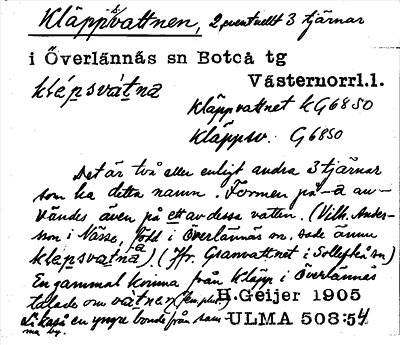 Kläppsvattnen, 2, eventuellt 3 tjärnar
i Överlännäs sn Boteå tg
Västernorrl.l.
klépsvátna
Kläppvattnet KG6850
Kläppsv. G6850
Det är två eller enligt andra 3 tjärnar
som ha detta namn. Formen på -a an-
vändes även på ett av dessa vatten. (Vilh. Anders-
son i Nässe, född i Överlännäs sn. sade ännu
klepsvatna). (Jfr. Granvattnet i Sollefteå sn)
En gammal kvinna från Kläpp i Överlännäs
talade om vátnen (fem. plur.)
H.Geijer 1905
Likaså en yngre bonde från samma by.
ULMA 508:54